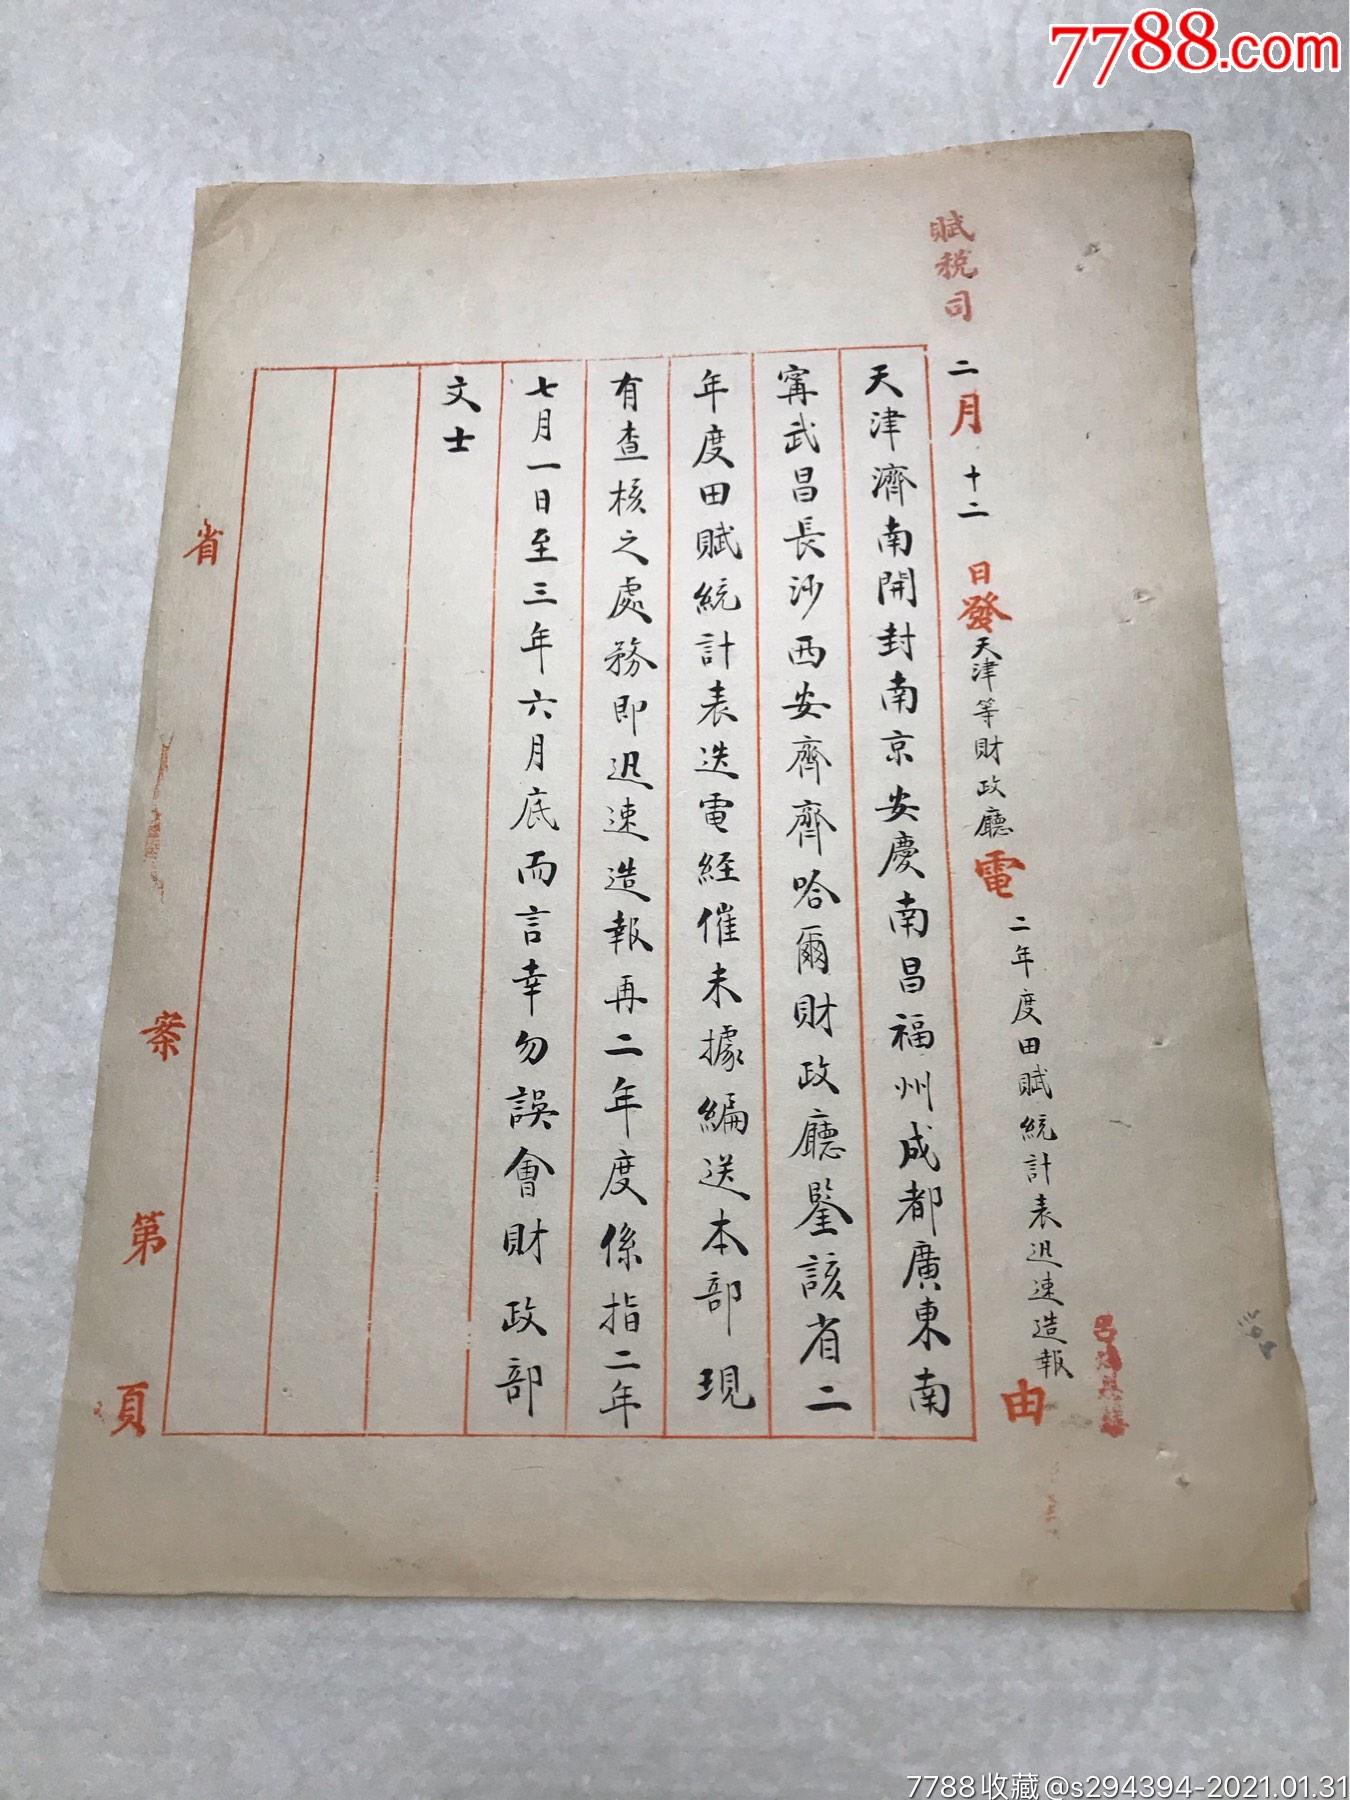 7788.com
賦税司
二月十二日發天津等財政廳電二年度田賦統計表迅速造報由
天津濟南開封南京安慶南昌福州成都廣東南
寗武昌長沙西安齊齊哈爾財政廳鑒該省二
年度田賦統計表迭電経催未據編送本部現
有查核之處務即迅速造報再二年度係指二年
七月一日至三年六月底而言幸勿誤會財政部
文士
省 案 第 頁
7788收藏@s294394-2021.01.31